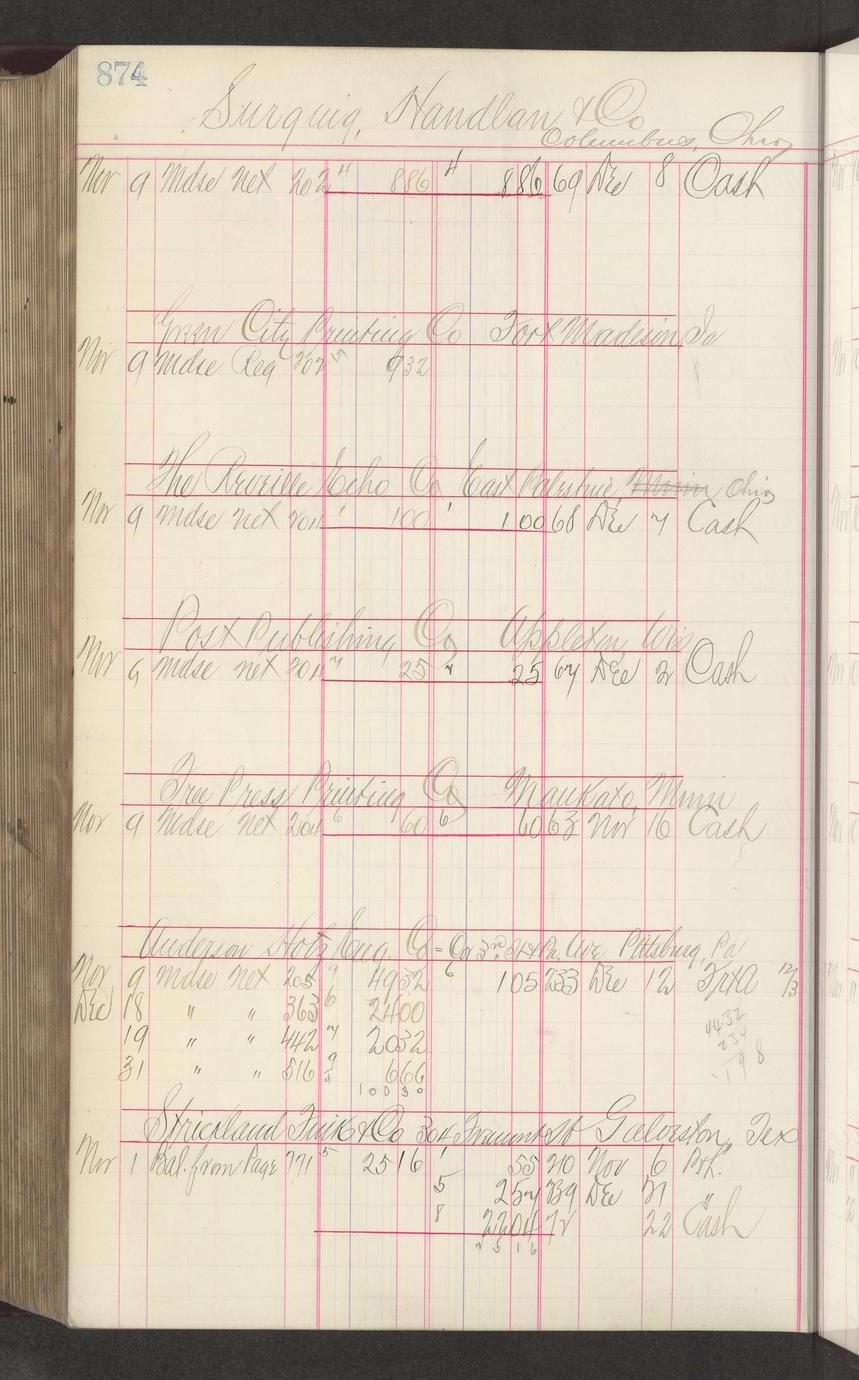 874
Handlan & Co
Columbus, Ohio
Nov 9 Mdse Net 202 4 886 4 886 69 Dec 8 Cash
Green City Printing Co Fort Madison Ia
Nov 9 Mdse Reg 202 932
The Reveille Echo Co, East Palestine, Ohio
Nov 9 Mdse Net 1 100 1 100 68 Dec 7 Cash
Post Publishing Co Appleton, Wis
Nov 9 Mdse Net 7 25 7 25 67 Dec 2 Cash
Free Press Printing Co Mankato, Minn
Nov 9 Mdse Net 6 60 6 60 63 Nov 16 Cash
Anderson Eng. Co = Cor 3rd St & Pa. Ave Pittsburg, Pa
Nov 9 Mdse Net 205 9 4932 6 105 233 Dec 12 12/3
Dec 18 " " 363 6 2400
19 " " 442 7 2032
31 " " 516 9 666
10030
& Co Tremont St Galveston, Tex
Nov 1 Bal. from Page 771 5 2516 1 55 20 Nov 6
5 257 Dec 21 "
8 2204 72 22 Cash
2516